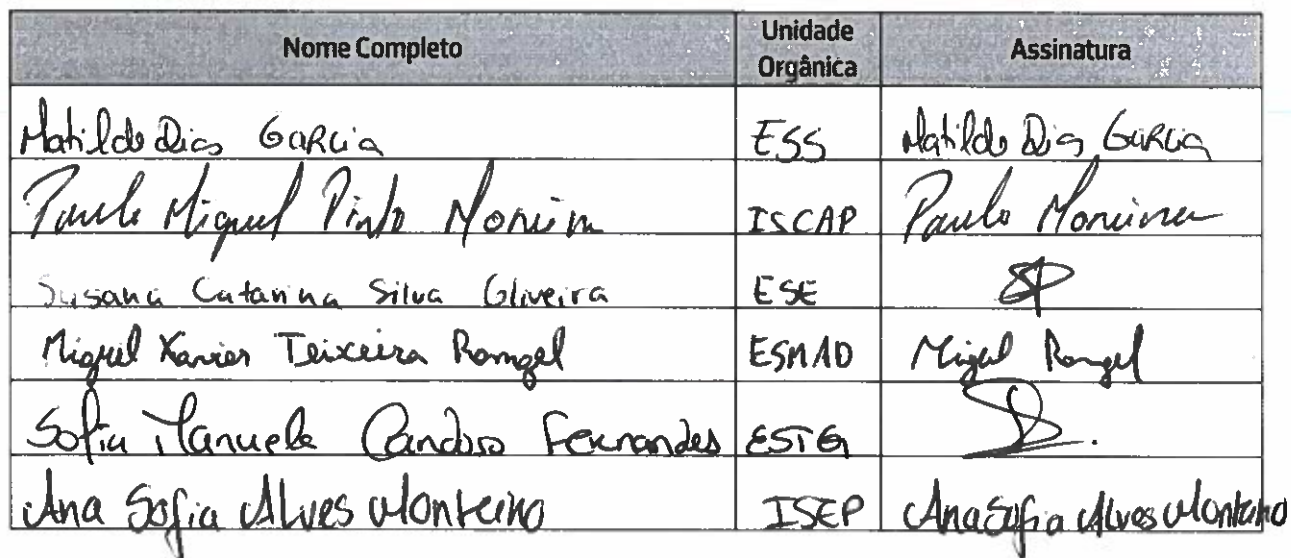 Nome Completo Unidade Orgânica Assinatura
Matilde Dias Garcia ESS Matilde Dias Garcia
Paulo Miguel Pinto Moreira ISCAP Paulo Moreira
Susana Catarina Silva Oliveira ESE
Miguel Xavier Teixeira Rangel ESMAD Miguel Rangel
Sofia Manuela Cardoso Fernandes ESTG
Ana Sofia Alves Monteiro ISEP Ana Sofia Alves Monteiro